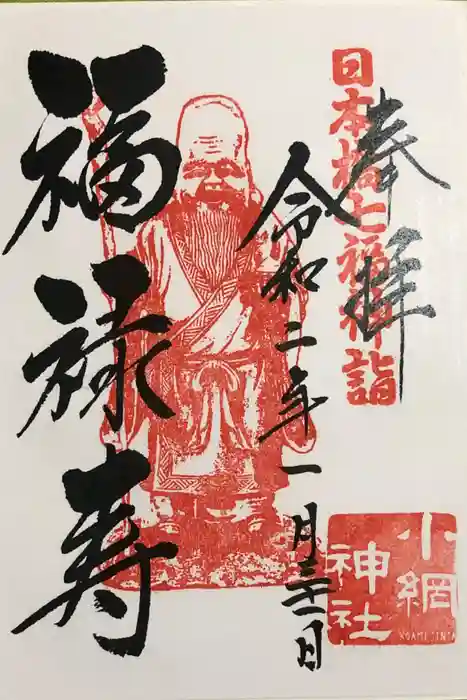 奉拝
日本橋七福神詣
令和二年一月三十一日
福禄寿
小網
神社
KOAMIJINJA